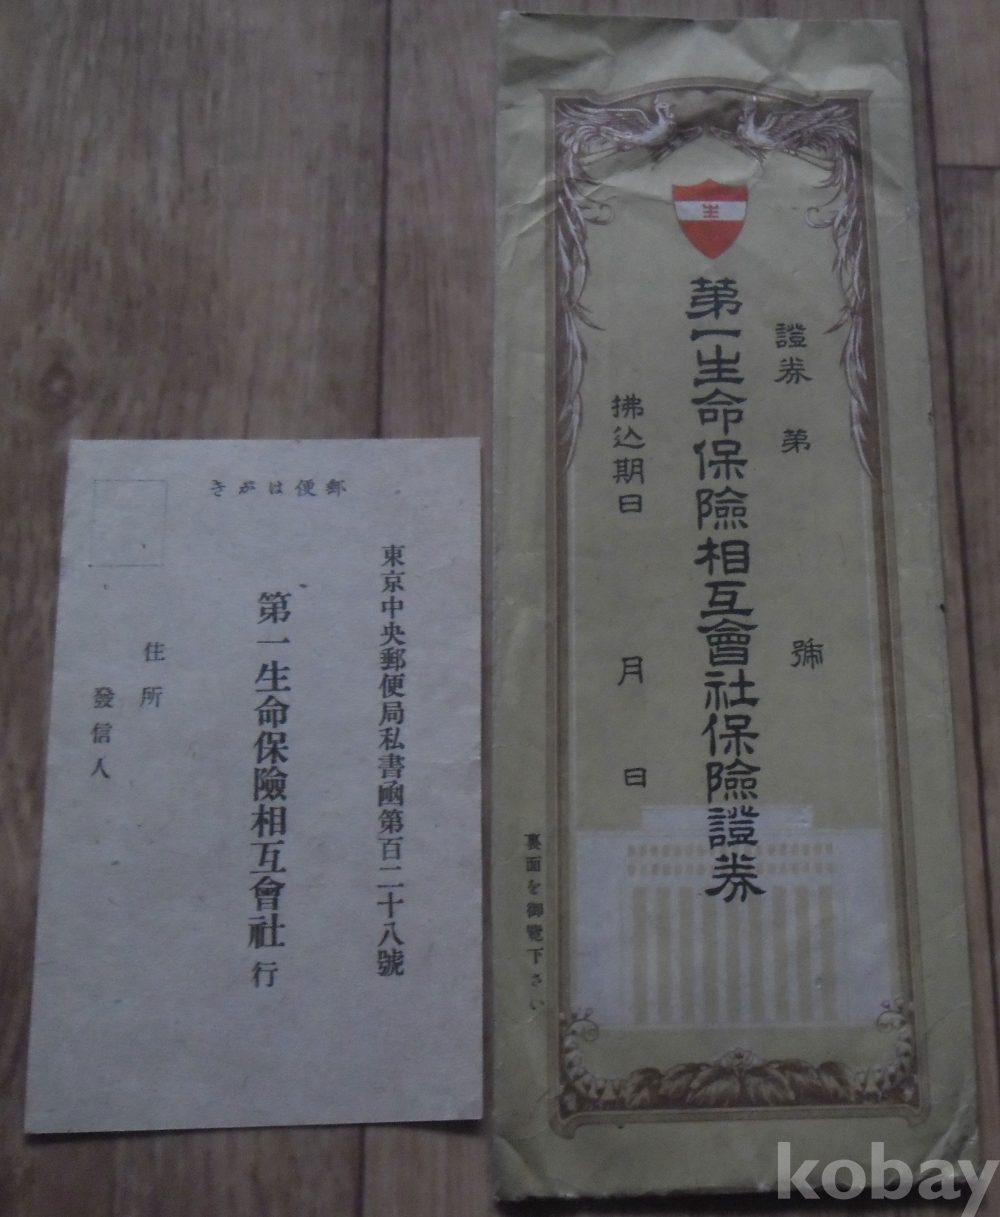 郵便はがき
東京中央郵便局私書函第百二十八號
第一生命保險相互會社 行
住所
發信人
生
證券第 號
第一生命保險相互會社保險證券
拂込期日 月 日
裏面を御覽下さい
kobay